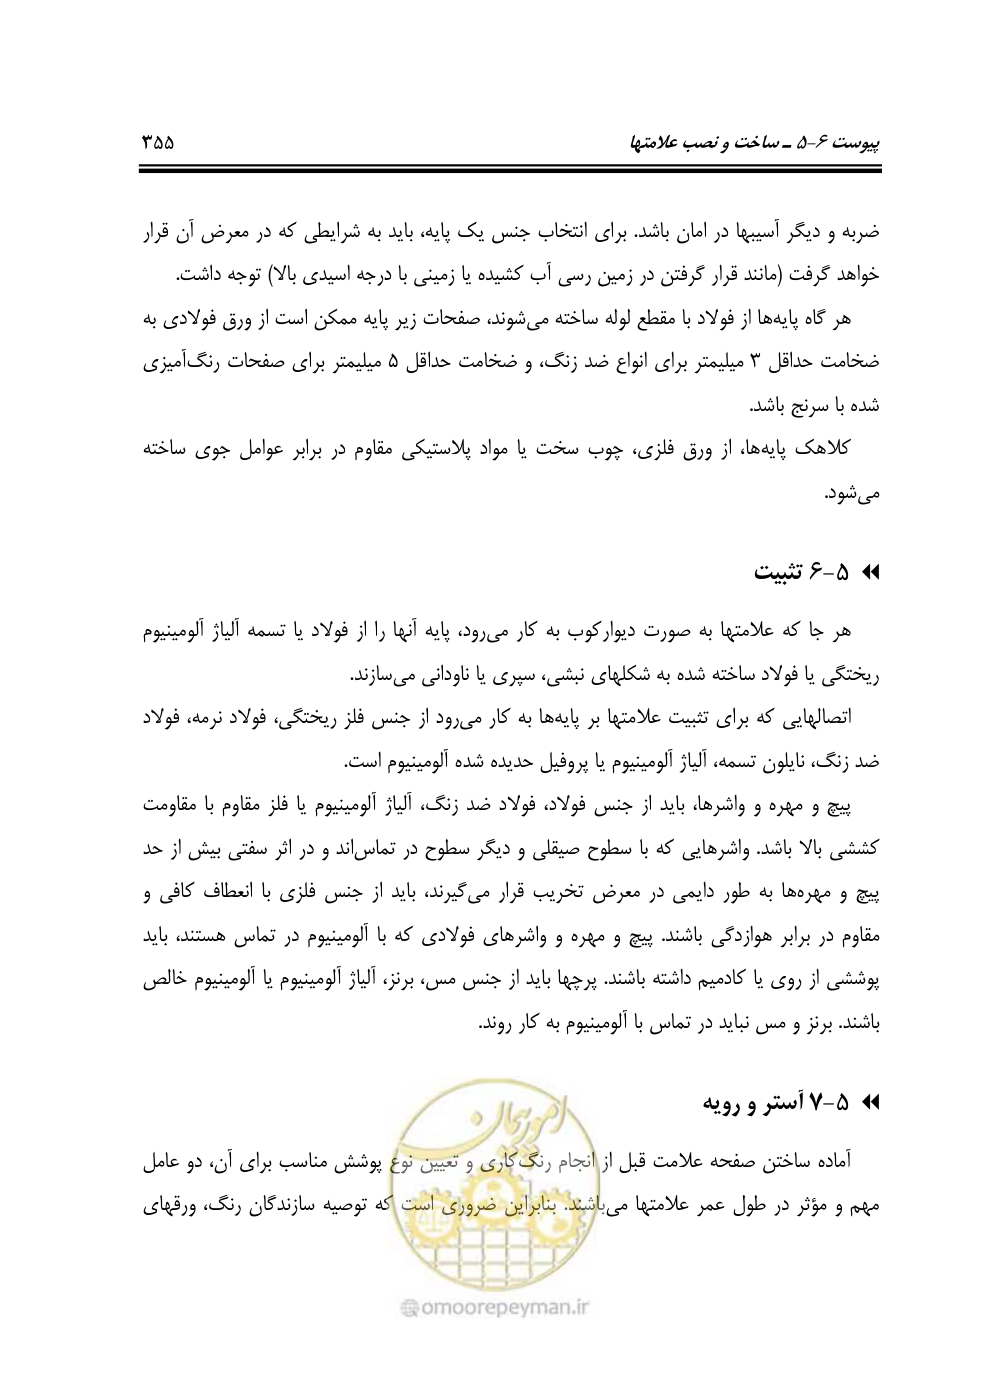 پیوست ۶-۵ ـ ساخت و نصب علامتها
۳۵۵
ضربه و دیگر آسیبها در امان باشد. برای انتخاب جنس یک پایه، باید به شرایطی که در معرض آن قرار
خواهد گرفت (مانند قرار گرفتن در زمین رسی آب کشیده یا زمینی با درجه اسیدی بالا) توجه داشت.
هر گاه پایه‌ها از فولاد با مقطع لوله ساخته می‌شوند، صفحات زیر پایه ممکن است از ورق فولادی به
ضخامت حداقل ۳ میلیمتر برای انواع ضد زنگ، و ضخامت حداقل ۵ میلیمتر برای صفحات رنگ‌آمیزی
شده با سرنج باشد.
کلاهک پایه‌ها، از ورق فلزی، چوب سخت یا مواد پلاستیکی مقاوم در برابر عوامل جوی ساخته
می‌شود.
۵-۶ تثبیت
هر جا که علامتها به صورت دیوارکوب به کار می‌رود، پایه آنها را از فولاد یا تسمه آلیاژ آلومینیوم
ریختگی یا فولاد ساخته شده به شکلهای نبشی، سپری یا ناودانی می‌سازند.
اتصالهایی که برای تثبیت علامتها بر پایه‌ها به کار می‌رود از جنس فلز ریختگی، فولاد نرمه، فولاد
ضد زنگ، نایلون تسمه، آلیاژ آلومینیوم یا پروفیل حدیده شده آلومینیوم است.
پیچ و مهره و واشرها، باید از جنس فولاد، فولاد ضد زنگ، آلیاژ آلومینیوم یا فلز مقاوم با مقاومت
کششی بالا باشد. واشرهایی که با سطوح صیقلی و دیگر سطوح در تماس‌اند و در اثر سفتی بیش از حد
پیچ و مهره‌ها به طور دایمی در معرض تخریب قرار می‌گیرند، باید از جنس فلزی با انعطاف کافی و
مقاوم در برابر هوازدگی باشند. پیچ و مهره و واشرهای فولادی که با آلومینیوم در تماس هستند، باید
پوششی از روی یا کادمیم داشته باشند. پرچها باید از جنس مس، برنز، آلیاژ آلومینیوم یا آلومینیوم خالص
باشند. برنز و مس نباید در تماس با آلومینیوم به کار روند.
۵-۷ آستر و رویه
آماده ساختن صفحه علامت قبل از انجام رنگ‌کاری و تعیین نوع پوشش مناسب برای آن، دو عامل
مهم و مؤثر در طول عمر علامتها می‌باشند. بنابراین ضروری است که توصیه سازندگان رنگ، ورقهای
امور پیمان
@omoorepeyman.ir